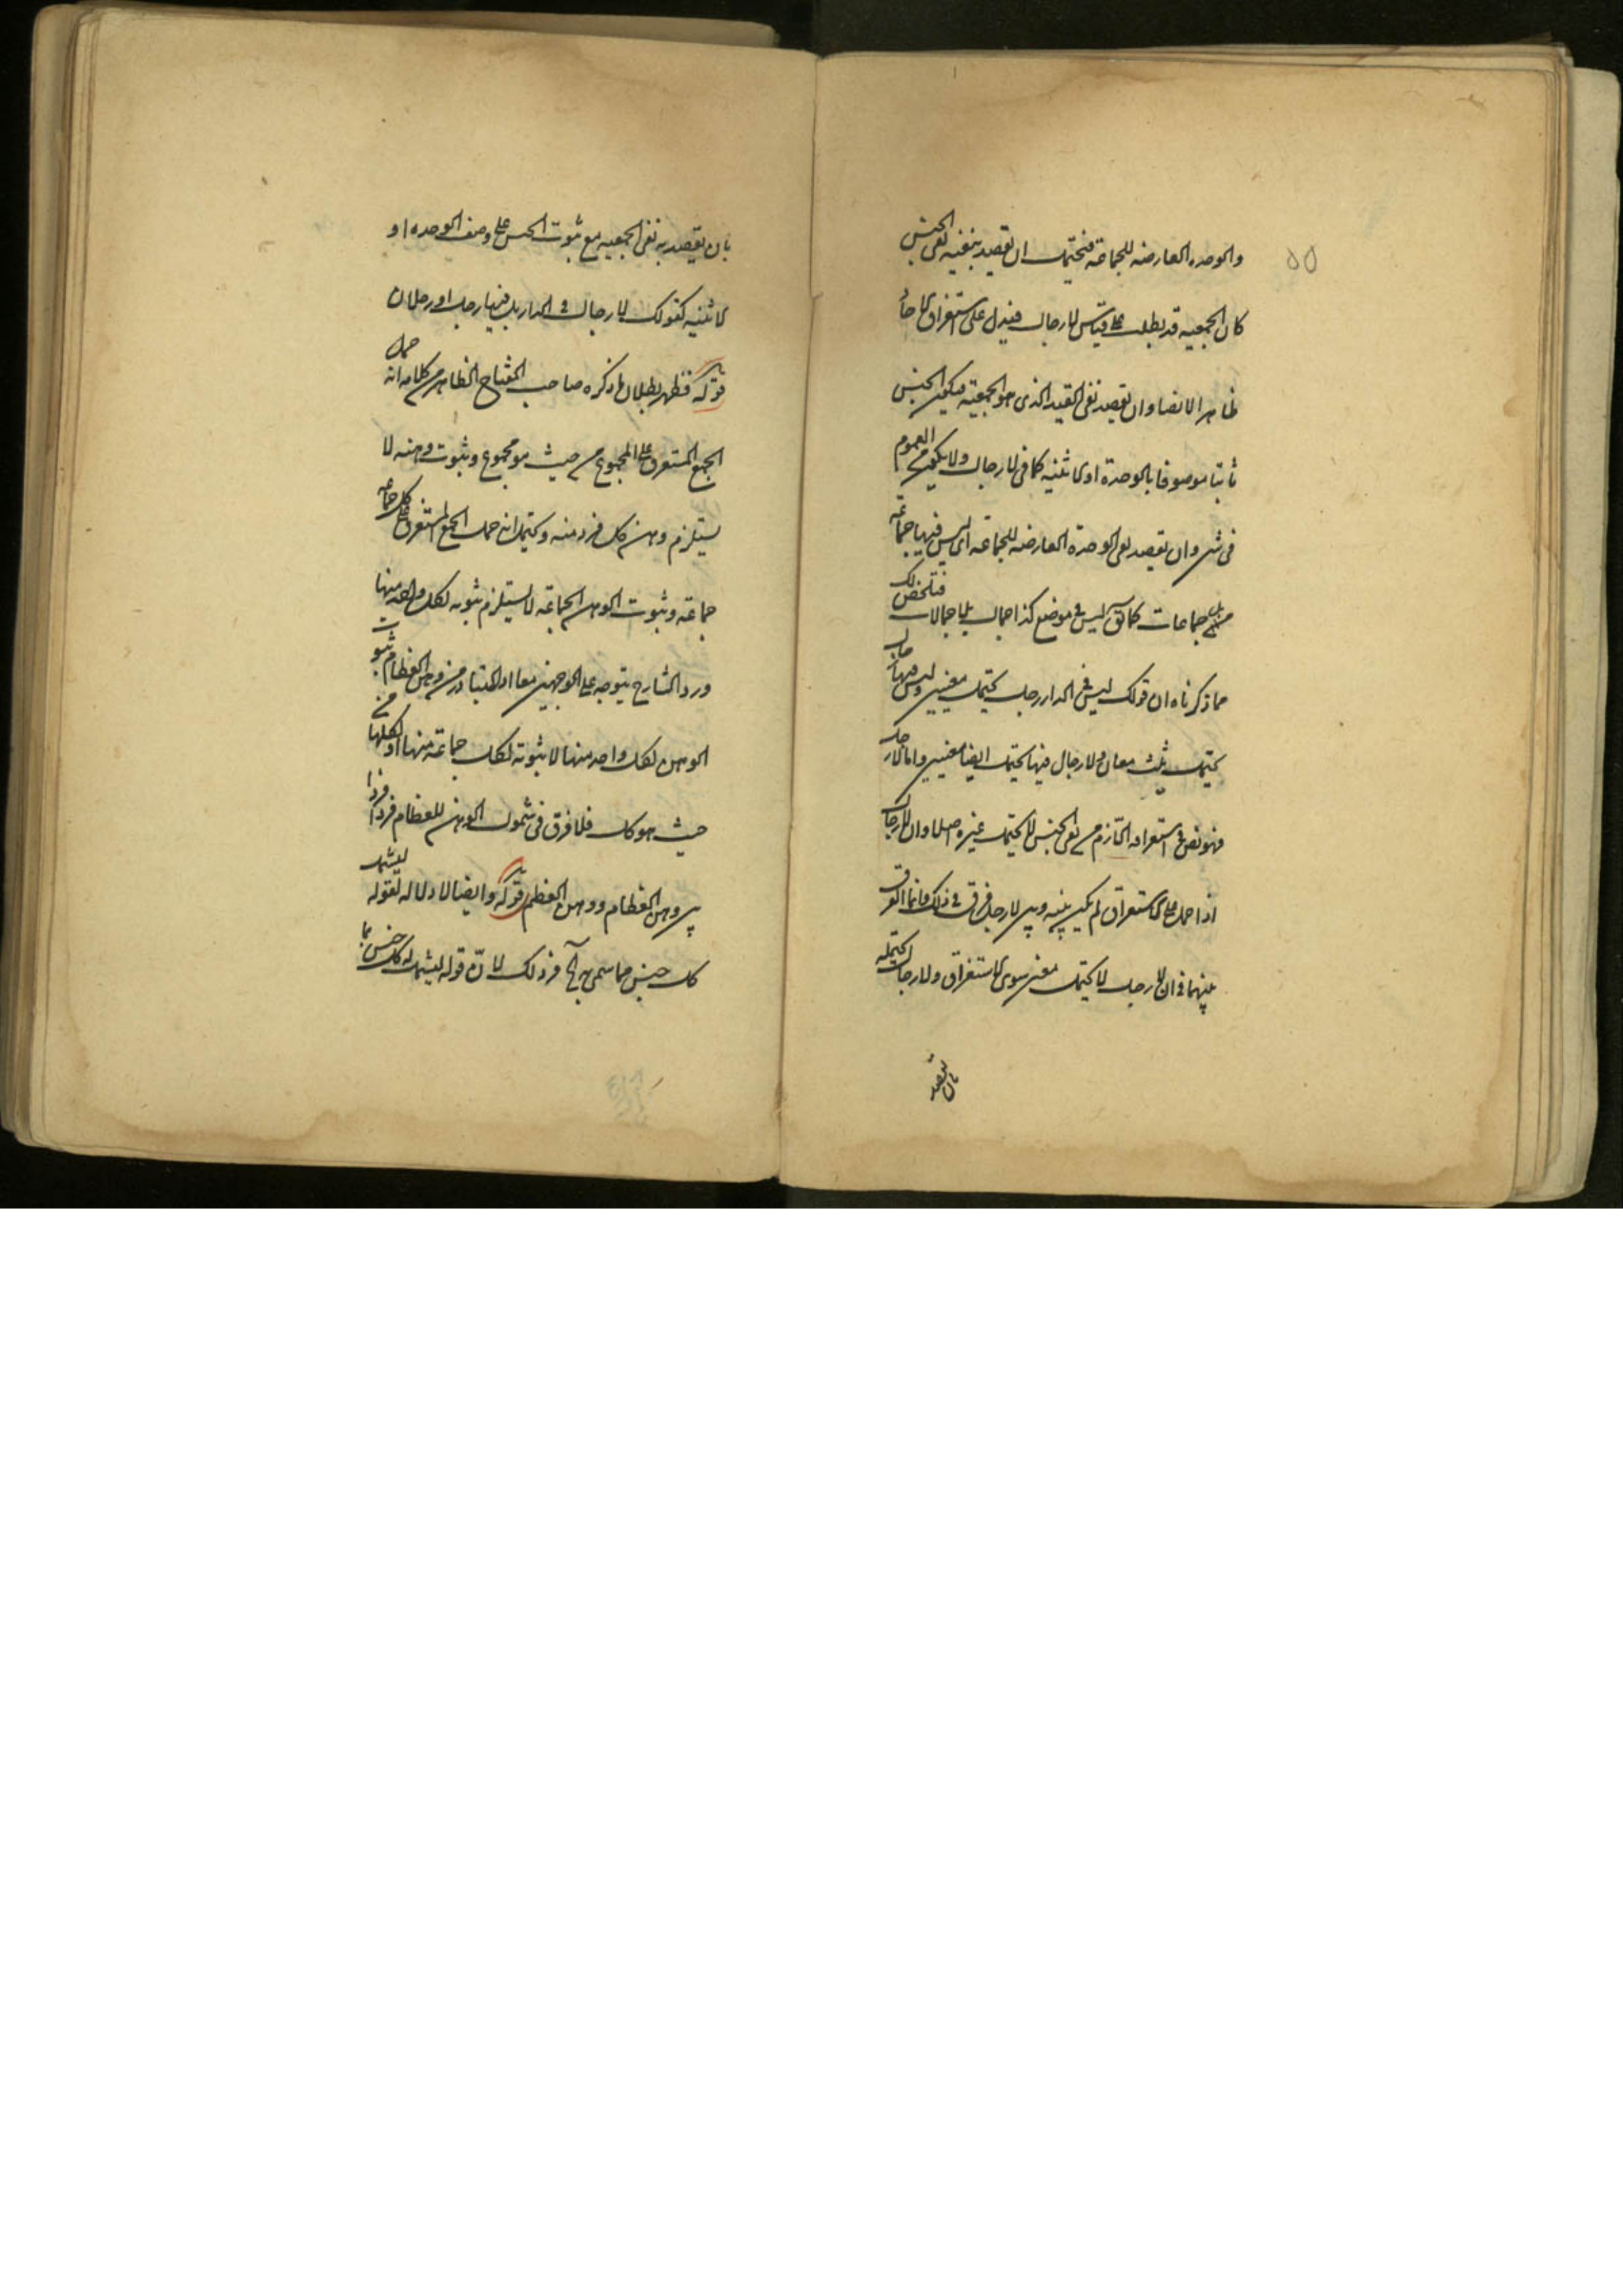 ٥٥
والوحده العارضه للجماعة فيحتمل ان يقصد بنفيه نفى الجنس
كان الجمعيه قد بطلت على قياس لا رجال فيدل على استغراق الآحاد
ظاهرا لا نصا وان يقصد نفى القيد الذى هو الجمعية فيكون الجنس
ثابتا موصوفا بالوحدة او الاثنينيه كما فى لا رجال ولا يكون من العموم
فى شىء وان يقصد نفى الوحدة العارضه للجماعه اى ليس فيها جماعة
بل جماعات كما يق ليس فى موضع كذا جمال بل جمالات فتلخص لك
مما ذكرناه ان قولك ليس فى الدار رجل يحتمل معنيين وليس فيها رجال
يحتمل ثلث معان ولا رجال فيها يحتمل ايضا معنيين واما لا رجل
فهو نص فى استغراقه اللازم من نفى الجنس لا يحتمل غيره اصلا وان لا رجال
اذا حمل على الاستغراق لم يكن بينه وبين لا رجل فرق فى ذلك وانما الفرق
بينهما فى ان لا رجل لا يحتمل معنى سوى الاستغراق ولا رجال يحتمله
بان يقصد
بان يقصد به نفى الجمعيه مع ثبوت الجنس على وصف الوحده او
الاثنينيه كقولك لا رجال فى الدار بل فيها رجل او رجلان
قوله فظهر بطلان ما ذكره صاحب المفتاح الظاهر من كلامه انه حمل
الجمع المستغرق على المجموع من حيث هو مجموع وثبوت وهنه لا
يستلزم وهن كل فرد منه ويحتمل انه حمل الجمع المستغرق على كل جماعه
جماعة وثبوت الوهن الجماعة لا يستلزم ثبوته لكل واحد منها
ورد الشارح يتوجه على الوجهين معا اذ المتبادر من وهن العظام ثبوت
الوهن لكل واحد منها لا ثبوته لكل جماعة منها او لكلها من
حيث هو كل فلا فرق فى شمول الوهن للعظام فردا فردا
بين وهن العظام ووهن العظم قوله وايضا لا دلاله لقوله ليشمل
كل جنس مما سمى به آلخ فرذلك لان قوله ليشمل كل جنس بما